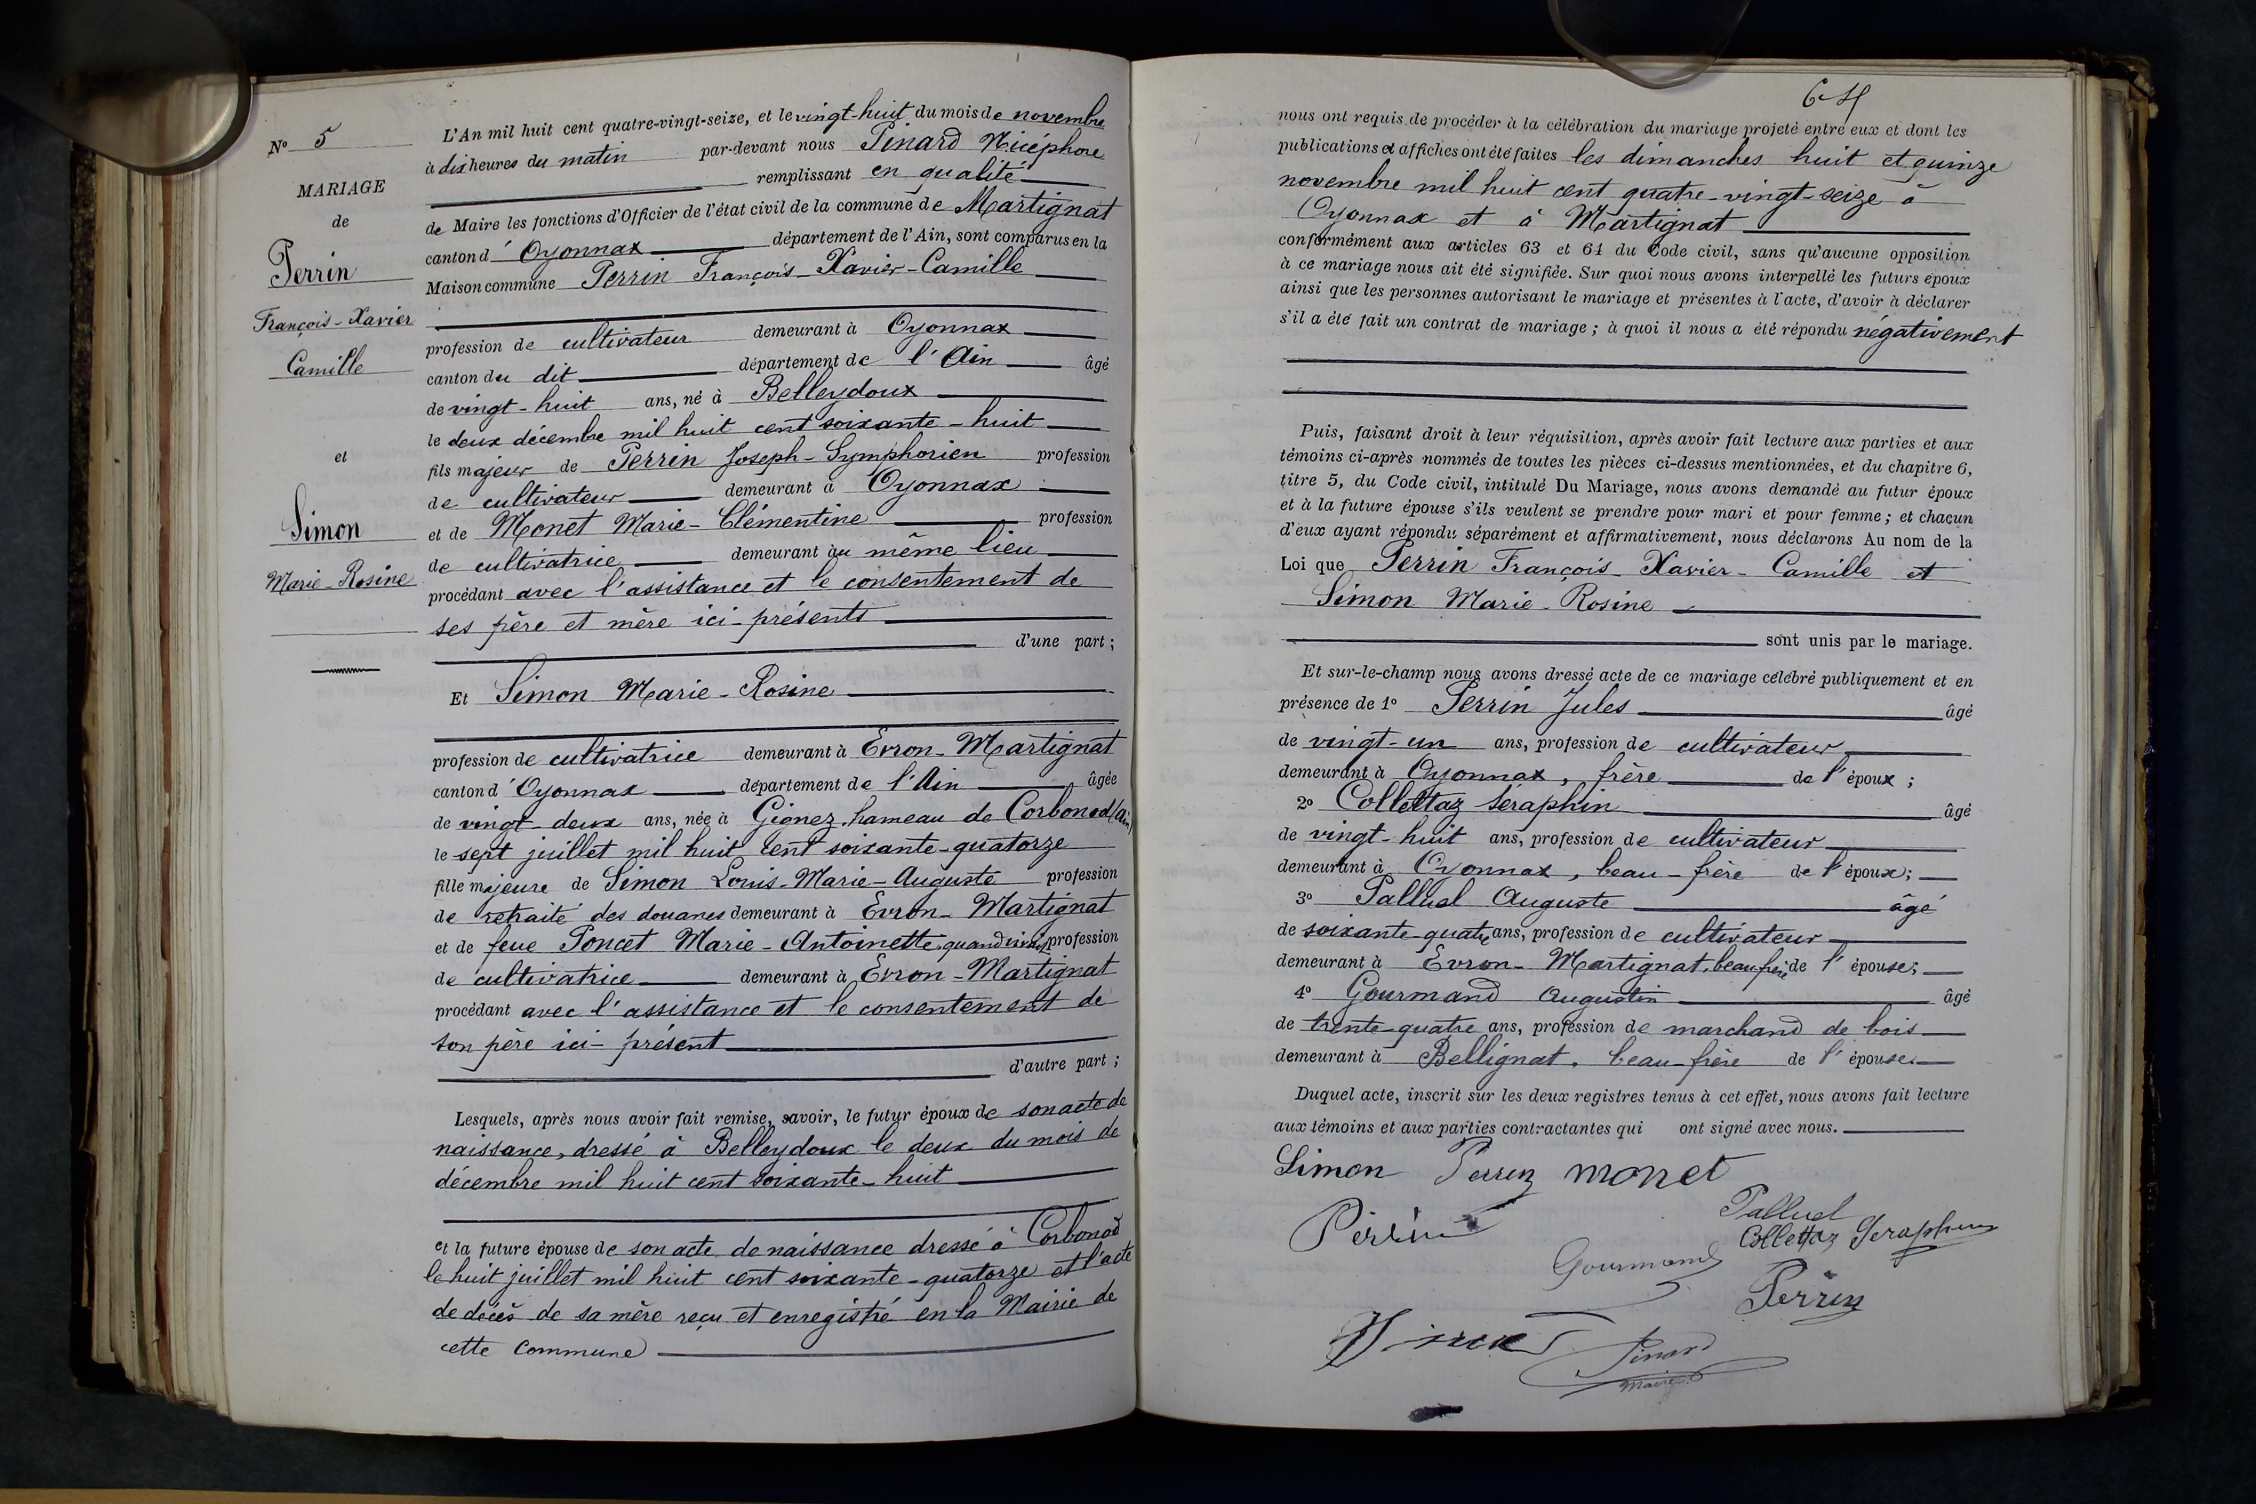 N° 5
MARIAGE
de
Perrin
François-Xavier
Camille
et
Simon
Marie-Rosine
L'An mil huit cent quatre-vingt-seize, et le vingt-huit du mois de novembre
à dix heures du matin par-devant nous Pinard Nicéphore
remplissant en qualité
de Maire les fonctions d'Officier de l'état civil de la commune de Martignat
canton d'Oyonnax département de l'Ain, sont comparus en la
Maison commune Perrin François-Xavier-Camille
profession de cultivateur demeurant à Oyonnax
canton du dit département de l'Ain âgé
de vingt-huit ans, né à Belleydoux
le deux décembre mil huit cent soixante-huit
fils majeur de Perrin Joseph-Symphorien profession
de cultivateur demeurant à Oyonnax
et de Monet Marie-Clémentine profession
de cultivatrice demeurant au même lieu
procédant avec l'assistance et le consentement de
ses père et mère ici-présents
d'une part ;
Et Simon Marie-Rosine
profession de cultivatrice demeurant à Evron-Martignat
canton d'Oyonnax département de l'Ain âgée
de vingt-deux ans, née à Gignez, hameau de Corbonod (Ain)
le sept juillet mil huit cent soixante-quatorze
fille majeure de Simon Louis-Marie-Auguste profession
de retraité des douanes demeurant à Evron-Martignat
et de feue Poncet Marie-Antoinette, quand vivait profession
de cultivatrice demeurant à Evron-Martignat
procédant avec l'assistance et le consentement de
son père ici-présent
d'autre part ;
Lesquels, après nous avoir fait remise, savoir, le futur époux de son acte de
naissance, dressé à Belleydoux le deux du mois de
décembre mil huit cent soixante-huit
et la future épouse de son acte de naissance dressé à Corbonod
le huit juillet mil huit cent soixante-quatorze et l'acte
de décès de sa mère reçu et enregistré en la Mairie de
cette commune
64
nous ont requis de procéder à la célébration du mariage projeté entre eux et dont les
publications et affiches ont été faites les dimanches huit et quinze
novembre mil huit cent quatre-vingt-seize à
Oyonnax et à Martignat
conformément aux articles 63 et 64 du Code civil, sans qu'aucune opposition
à ce mariage nous ait été signifiée. Sur quoi nous avons interpellé les futurs époux
ainsi que les personnes autorisant le mariage et présentes à l'acte, d'avoir à déclarer
s'il a été fait un contrat de mariage ; à quoi il nous a été répondu négativement
Puis, faisant droit à leur réquisition, après avoir fait lecture aux parties et aux
témoins ci-après nommés de toutes les pièces ci-dessus mentionnées, et du chapitre 6,
titre 5, du Code civil, intitulé Du Mariage, nous avons demandé au futur époux
et à la future épouse s'ils veulent se prendre pour mari et pour femme ; et chacun
d'eux ayant répondu séparément et affirmativement, nous déclarons Au nom de la
Loi que Perrin François-Xavier-Camille et
Simon Marie-Rosine
sont unis par le mariage.
Et sur-le-champ nous avons dressé acte de ce mariage célébré publiquement et en
présence de 1° Perrin Jules âgé
de vingt-un ans, profession de cultivateur
demeurant à Oyonnax, frère de l'époux ;
2° Collettaz Séraphin âgé
de vingt-huit ans, profession de cultivateur
demeurant à Oyonnax, beau-frère de l'époux ;
3° Palluel Auguste âgé
de soixante quatre ans, profession de cultivateur
demeurant à Evron-Martignat, beau frère de l'épouse ;
4° Gourmand Augustin âgé
de trente-quatre ans, profession de marchand de bois
demeurant à Bellignat, beau-frère de l'épouse.
Duquel acte, inscrit sur les deux registres tenus à cet effet, nous avons fait lecture
aux témoins et aux parties contractantes qui ont signé avec nous.
Simon Perrin monet
Perrin
Palluel
Collettaz Seraphin
Gourmand
Perrin
Pinard
Maire